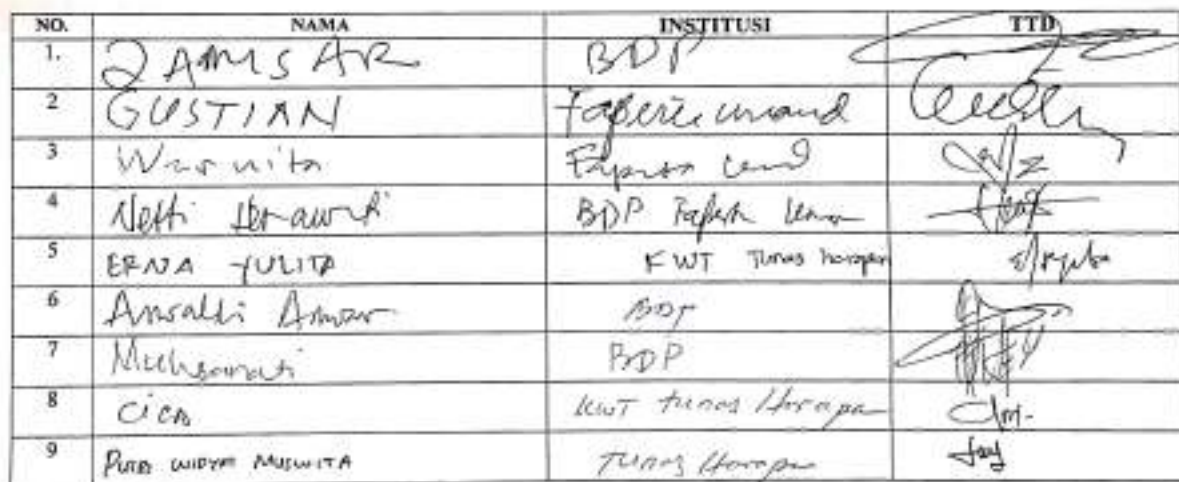 NO. NAMA INSTITUSI TTD
1. ZAMSAR BDP
2 GUSTIAN Faperta unand
3 Warnita Faperta Unand
4 Netti Herawati BDP Faperta
5 ERNA YULITA KWT Tunas harapan
6 Aswaldi Anwar BDP
7 Muhsanati BDP
8 CICA KWT tunas Harapan
9 PUTRI WIDYA MUSWITA Tunas Harapan